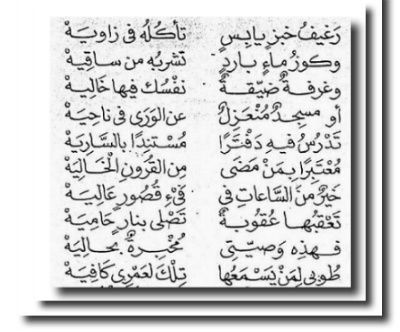 رَغيفُ خبز يابِسٍ تأكُلُه فى زاوِيَهْ
وكوزُ ماءٍ بارِدٍ تَشربُه من ساقِيهْ
وغرفةٌ ضَيّقةٌ نفْسُك فيها خالِيَهْ
أو مسجدٌ مُنْعَزِلٌ عن الوَرَى فى ناحِيَهْ
تَدْرُسُ فيه دَفْتَرًا مُسْتنِدًا بالسَّارِيَهْ
مُعْتَبِرًا بِمَنْ مَضَى مِن القُرونِ الْخَالِيَهْ
خَيْرٌ مِنَ السَّاعاتِ فى فَىْءِ قُصُورٍ عَالِيَهْ
تَعْقبُهَا عُقُوبَةٌ تَصْلى بنارٍ حَامِيَهْ
فهذه وَصِيَّتِى مُخْبِرةٌ بحالِيَهْ
طُوبى لِمَنْ يَسْمَعُها تِلْكَ لَعَمْرِى كافِيَهْ